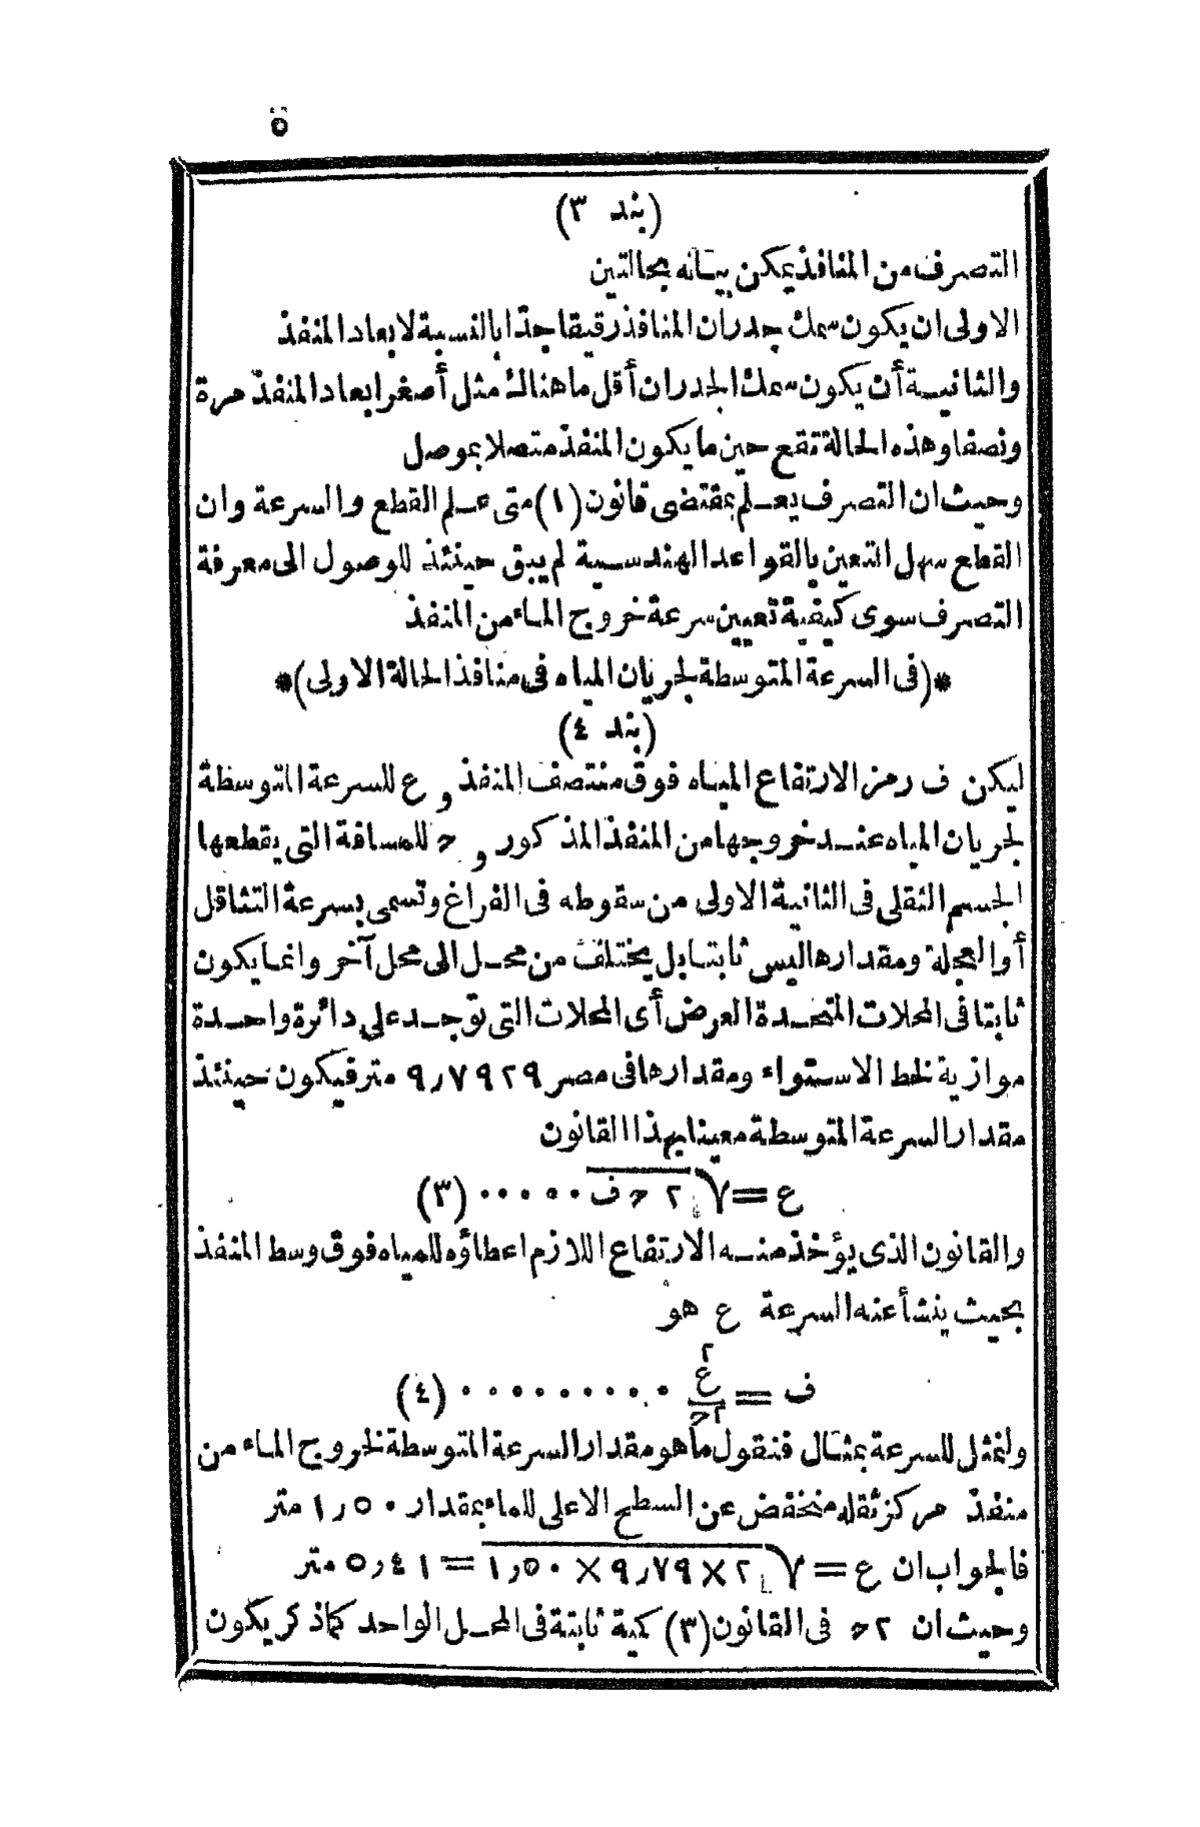 ٥
(بند ٣)
التصرف من المنافذ يمكن بيانه بحالتين
الاولى ان يكون سمك جدران المنافذ رقيقا جدّا بالنسبة لابعاد المنفذ
والثانيـة أن يكون سمك الجدران أقل ما هناك مثل أصغر ابعاد المنفذ مرة
ونصفا وهذه الحالة تقع حين ما يكون المنفذ متصلا بموصل
وحيث ان التصرف يعـلم بمقتضى قانون (١) متى عـلم القطع والسرعة وان
القطع سهل التعين بالقواعد الهندسـية لم يبق حينئذ للوصول الى معرفة
التصرف سوى كيفية تعيين سرعة خروج المـاء من المنفذ
*(فى السرعة المتوسطة لجريان المياه فى منافذ الحالة الاولى)*
(بند ٤)
ليكن ف رمز الارتفاع الميـاه فوق منتصف المنفذ و ع للسرعة المتوسطة
لجريان المياه عنـد خروجها من المنفذ المذكور و ح للمسافة التى يقطعها
الجسم الثقلى فى الثانية الاولى من سقوطه فى الفراغ وتسمى بسرعة التثاقل
أو العجلة ومقدارها ليس ثابتـا بل يختلف من محـل الى محل آخر وانمـا يكون
ثابتا فى المحلات المتحـدة العرض أى المحلات التى توجـد على دائرة واحـدة
موازية لخط الاسـتواء ومقدارها فى مصر ٩٫٧٩٢٩ متر فيكون حينئذ
مقدار السرعة المتوسطة معينا بهذا القانون
ع = √٢ ح ف ..... (٣)
والقانون الذى يؤخذ منـه الارتفاع اللازم اعطاؤه للمياه فوق وسط المنفذ
بحيث ينشأ عنه السرعة ع هو
ف = ع٢/٢ح ......... (٤)
ولنمثل للسرعة بمثـال فنقول ما هو مقدار السرعة المتوسطة لخروج المـاء من
منفذ مركز ثقله منخفض عن السطح الاعلى للماء بمقدار ١٫٥٠ متر
فالجواب ان ع = √٢×٩٫٧٩×١٫٥٠ = ٥٫٤١ متر
وحيث ان ٢ح فى القانون (٣) كمية ثابتة فى المحـل الواحد كما ذكر يكون